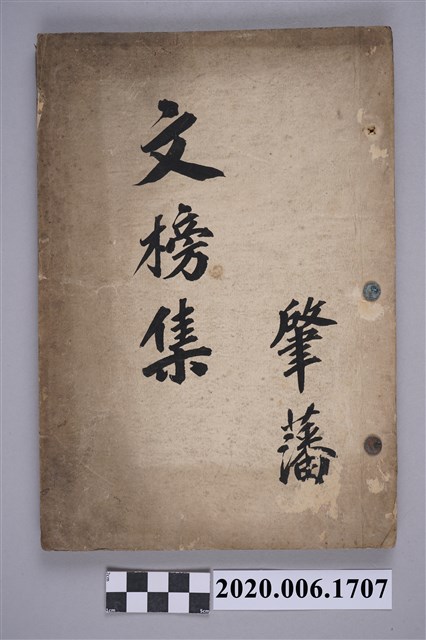 肇藩
文榜集
2020.006.1707
1cm
5cm